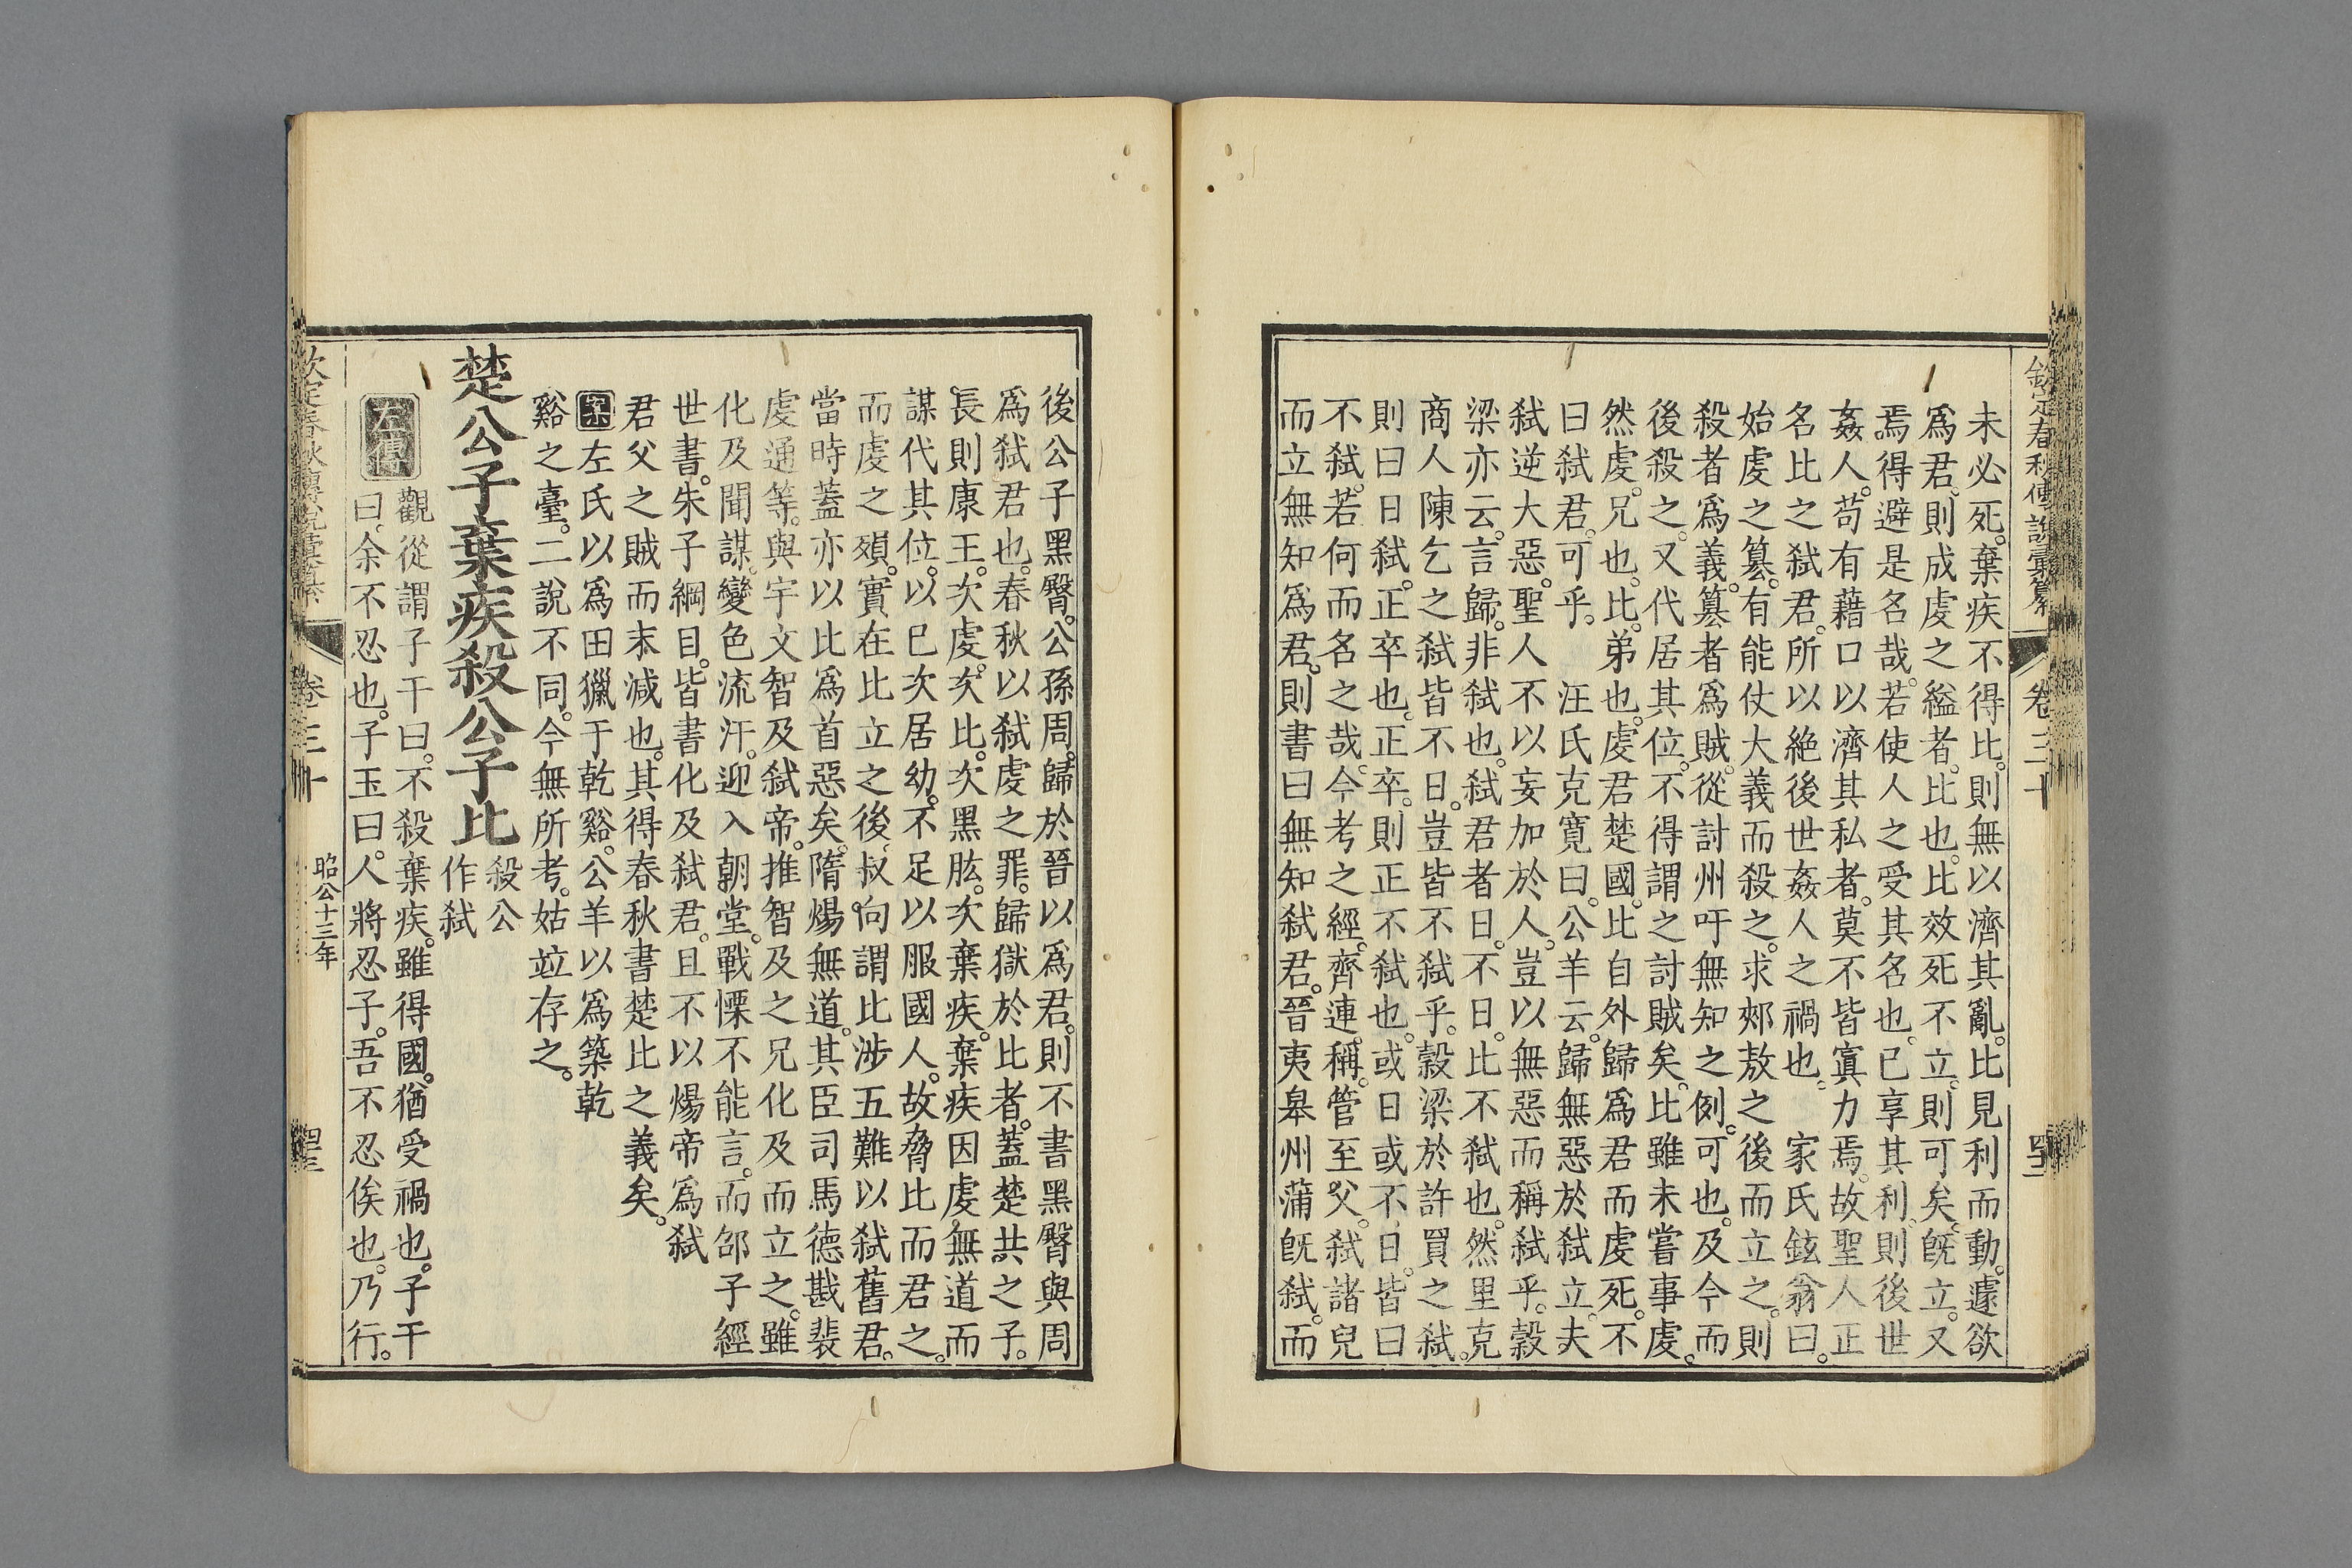 欽定春秋傳說彙纂 卷三十
未必死。棄疾不得比。則無以濟其亂。比見利而動。遽欲
爲君。則成虔之縊者。比也。比效死不立。則可矣。旣立。又
焉得避是名哉。若使人之受其名也。已享其利。則後世
姦人。苟有藉口以濟其私者。莫不皆寘力焉。故聖人正
名比之弑君。所以絶後世姦人之禍也。 家氏鉉翁曰。
始虔之簒。有能仗大義而殺之。求郟敖之後而立之。則
殺者爲義。簒者爲賊。從討州吁無知之例。可也。及今而
後殺之。又代居其位。不得謂之討賊矣。比雖未嘗事虔。
然虔。兄也。比。弟也。虔君楚國。比自外歸爲君而虔死。不
曰弑君。可乎。 汪氏克寬曰。公羊云。歸無惡於弑立。夫
弑逆大惡。聖人不以妄加於人。豈以無惡而稱弑乎。穀
梁亦云。言歸。非弑也。弑君者日。不日。比不弑也。然里克
商人陳乞之弑皆不日。豈皆不弑乎。穀梁於許買之弑。
則曰日弑。正卒也。正卒。則正不弑也。或日或不日。皆曰
不弑。若何而名之哉。今考之經。齊連稱。管至父。弑諸兒
而立無知爲君。則書曰無知弑君。晉夷皋州蒲旣弑。而
後公子黑臀。公孫周。歸於晉以爲君。則不書黑臀與周
爲弑君也。春秋以弑虔之罪。歸獄於比者。蓋楚共之子。
長則康王。次虔。次比。次黑肱。次棄疾。棄疾因虔無道而
謀代其位。以已次居幼。不足以服國人。故脅比而君之。
而虔之頵。實在比立之後。叔向謂比涉五難以弑舊君。
當時蓋亦以比爲首惡矣。隋煬無道。其臣司馬德戡裴
虔通等。與宇文智及弑帝。推智及之兄化及而立之。雖
化及聞謀。變色流汗。迎入朝堂。戰慄不能言。而邵子經
世書。朱子綱目。皆書化及弑君。且不以煬帝爲弑
君父之賊而末減也。其得春秋書楚比之義矣。
案左氏以爲田獵于乾谿。公羊以爲築乾
谿之臺。二說不同。今無所考。姑竝存之。
楚公子棄疾殺公子比
殺公
作弑
左傳
觀從謂子干曰。不殺棄疾。雖得國。猶受禍也。子干
曰。余不忍也。子玉曰。人將忍子。吾不忍俟也。乃行。
卷三十 昭公十三年